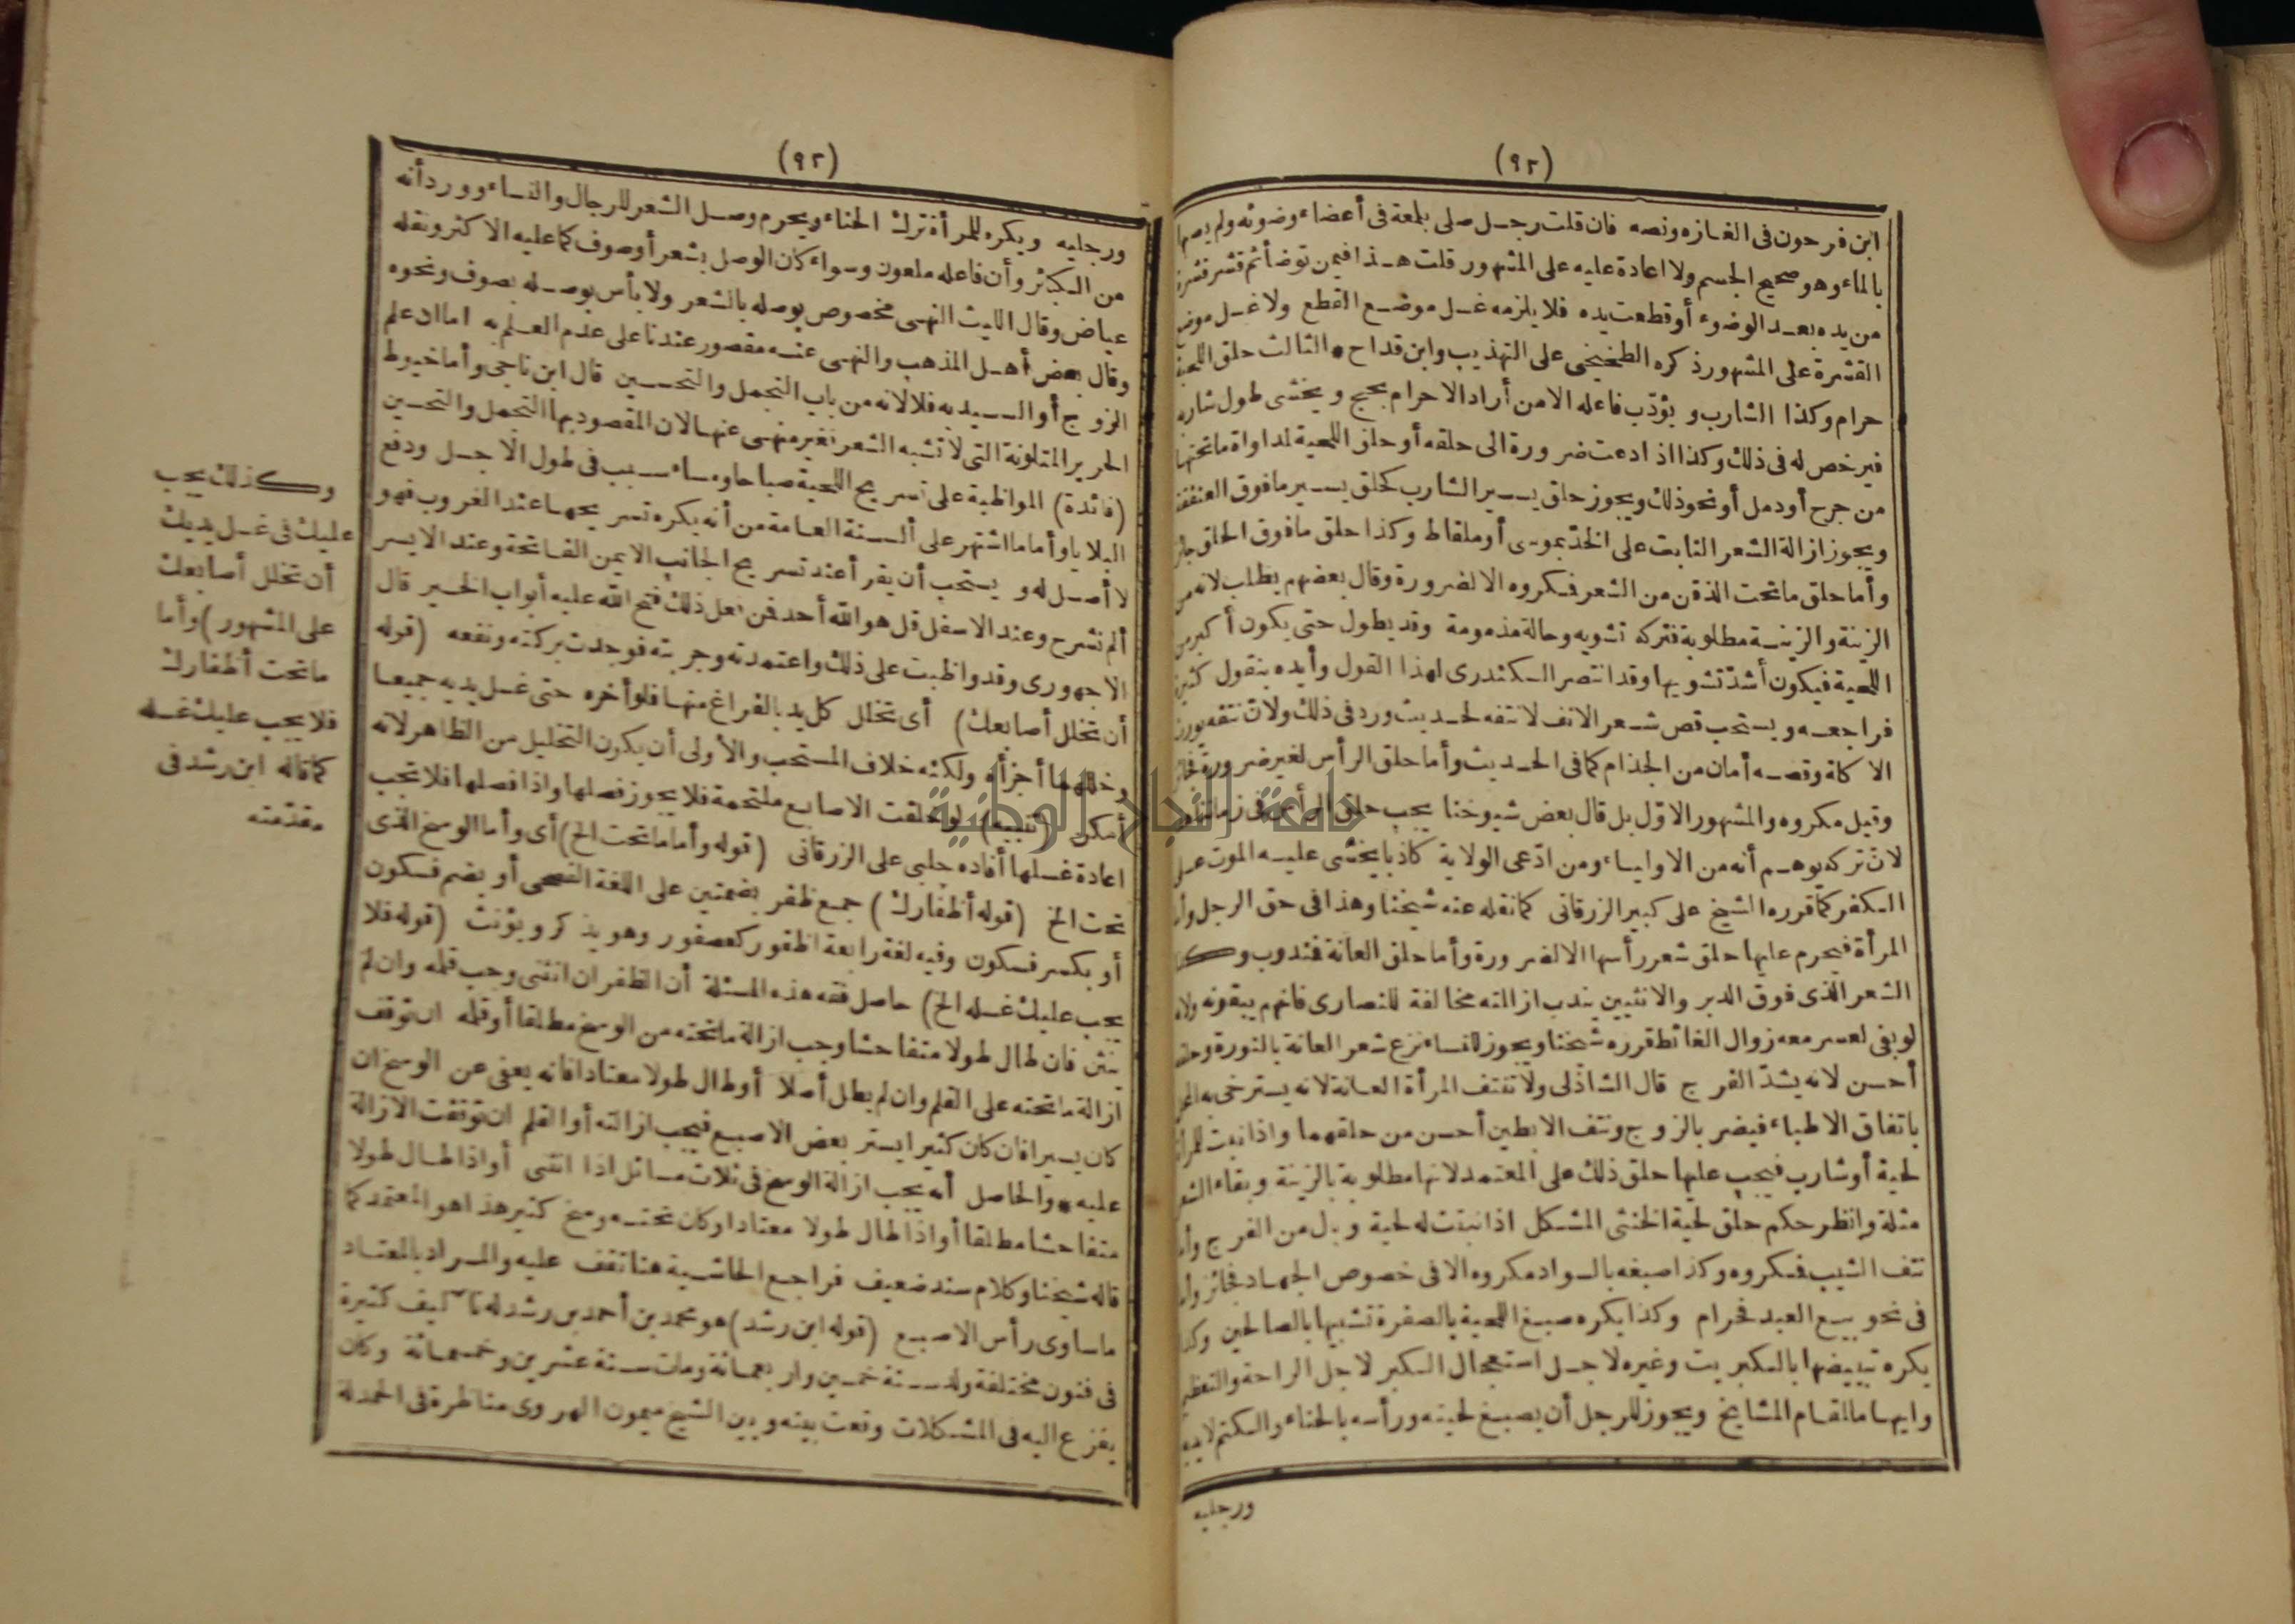 (٩٢)
ابن فرحون فى الغازه ونصه فان قلت رجل صلى بلعة فى أعضاء وضوئه ولم يصبها
بالماء وهو صحيح الجسم ولا اعادة عليه على المشهور قلت هذا فيمن توضأ ثم قشر قشرة
من يده بعد الوضوء أو قطعت يده فلا يلزمه غسل موضع القطع ولا غسل موضع
القشرة على المشهور ذكره الطخيخى على التهذيب وابن قداح * الثالث حلق اللحية
حرام وكذا الشارب ويؤدّب فاعله الا من أراد الاحرام بحج ويخشى طول شاربه
فيرخص له فى ذلك وكذا اذا دعت ضرورة الى حلقه أو حلق اللحية لمداواة ما تحتها
من جرح أو دمل أو نحو ذلك ويجوز حلق يسير الشارب كحلق يسير ما فوق العنفقة
ويجوز ازالة الشعر النابت على الخدّ بموسى أو ملقاط وكذا حلق ما فوق الحلق جائز
وأما حلق ما تحت الذقن من الشعر فمكروه الا لضرورة وقال بعضهم يطلب لانه من
الزينة والزينة مطلوبة فتركه تشويه وحالة مذمومة وقد يطول حتى يكون أكبر من
اللحية فيكون أشدّ تشويها وقد انتصر السكندرى لهذا القول وأيده بنقول كثيرة
فراجعه ويستحب قص شعر الانف لا نتفه لحديث ورد فى ذلك ولان نتفه يورث
الاكلة وقصه أمان من الجذام كما فى الحديث وأما حلق الرأس لغير ضرورة فجائز
وقيل مكروه والمشهور الاوّل بل قال بعض شيوخنا يجب حلق الرأس فى زماننا
لانّ تركه يوهم أنه من الاولياء ومن ادّعى الولاية كاذبا يخشى عليه الموت على
الكفر كما قرره الشيخ على كبير الزرقانى كما نقله عنه شيخنا وهذا فى حق الرجل وأما
المرأة فيحرم عليها حلق شعر رأسها الا لضرورة وأما حلق العانة فمندوب وكذا
الشعر الذى فوق الدبر والانثيين يندب ازالته مخالفة للنصارى فانهم يبقونه ولانه
لو بقى لعسر معه زوال الغائط قرره شيخنا ويجوز للنساء نزع شعر العانة بالنورة وحلقه
أحسن لانه يشدّ الفرج قال الشاذلى ولا تنتف المرأة العانة لانه يسترخى به المحل
باتفاق الاطباء فيضر بالزوج ونتف الابطين أحسن من حلقهما واذا نبت للمرأة
لحية أو شارب فيجب عليها حلق ذلك على المعتمد لانها مطلوبة بالزينة وبقاء الشعر
مثلة وانظر حكم حلق لحية الخنثى المشكل اذا نبتت له لحية وبال من الفرج وأما
نتف الشيب فمكروه وكذا صبغه بالسواد مكروه الا فى خصوص الجهاد فجائز وأما
فى نحو بيع العبد فحرام وكذا يكره صبغ اللحية بالصفرة تشبيها بالصالحين وكذا
يكره تبييضها بالكبريت وغيره لاجل استعجال الكبر لاجل الراحة والتعظيم
وايهاما لمقام المشايخ ويجوز للرجل أن يصبغ لحيته ورأسه بالحناء والكتم لا يديه
ورجليه
(٩٣)
ورجليه ويكره للمرأة ترك الحناء ويحرم وصل الشعر للرجال والنساء وورد أنه
من الكبائر وأن فاعله ملعون وسواء كان الوصل بشعر أو صوف كما عليه الاكثر ونقله
عياض وقال الليث النهى مخصوص بوصله بالشعر ولا بأس بوصله بصوف ونحوه
وقال بعض أهل المذهب والنهى عنه مقصور عندنا على عدم العلم به اما ان علم
الزوج أو السيد به فلا لانه من باب التجمل والتحسين قال ابن ناجى وأما خيوط
الحرير الملونة التى لا تشبه الشعر فغير منهى عنها لان المقصود بها التجمل والتحسين
(فائدة) المواظبة على تسريح اللحية صباحا ومساء سبب فى طول الاجل ودفع
البلايا وأما ما اشتهر على ألسنة العامة من أنه يكره تسريحها عند الغروب فهو
لا أصل له ويستحب أن يقرأ عند تسريح الجانب الايمن الفاتحة وعند الايسر
ألم نشرح وعند الاسفل قل هو الله أحد فمن فعل ذلك فتح الله عليه أبواب الخير قال
الاجهورى وقد واظبت على ذلك واعتمدته وجربته فوجدت بركته ونفعه (قوله
أن تخلل أصابعك) أى تخلل كل يد بالفراغ منها فلو أخره حتى غسل يديه جميعا
وخللهما أجزأه ولكنه خلاف المستحب والأولى أن يكون التخليل من الظاهر لانه
أمكن (تنبيه) لو خلقت الاصابع ملتحمة فلا يجوز فصلها واذا فصلها فلا تجب
اعادة غسلها أفاده جلبى على الزرقانى (قوله وأما ما تحت الخ) أى وأما الوسخ الذى
تحت الخ (قوله أظفارك) جمع ظفر بضمتين على اللغة الفصحى أو بضم فسكون
أو بكسر فسكون وفيه لغة رابعة اظفور كعصفور وهو يذكر ويؤنث (قوله فلا
يجب عليك غسله الخ) حاصل فقه هذه المسئلة أن الظفر ان انثنى وجب قلمه وان لم
ينثن فان طال طولا متفاحشا وجب ازالة ما تحته من الوسخ مطلقا أو قلمه ان توقف
ازالة ما تحته على القلم وان لم يطل أصلا أو طال طولا معتادا فانه يعفى عن الوسخ ان
كان يسيرا فان كان كثيرا يستر بعض الاصبع فيجب ازالته أو القلم ان توقفت الازالة
عليه * والحاصل أنه يجب ازالة الوسخ فى ثلاث مسائل اذا انثنى أو اذا طال طولا
متفاحشا مطلقا أو اذا طال طولا معتادا وكان تحته وسخ كثير هذا هو المعتمد كما
قاله شيخنا وكلام سند ضعيف فراجع الحاشية هنا تقف عليه والمراد بالمعتاد
ما ساوى رأس الاصبع (قوله ابن رشد) هو محمد بن أحمد بن رشد له تآليف كثيرة
فى فنون مختلفة ولد سنة خمسين واربعمائة ومات سنة عشرين وخمسمائة وكان
يفزع اليه فى المشكلات وقعت بينه وبين الشيخ ميمون الهروى مناظرة فى الحمدلة
وكذلك يجب
عليك فى غسل يديك
أن تخلل أصابعك
على المشهور) وأما
ما تحت أظفارك
فلا يجب عليك غسله
كما قاله ابن رشد فى
مقدّمته
جامعة النجاح الوطنية